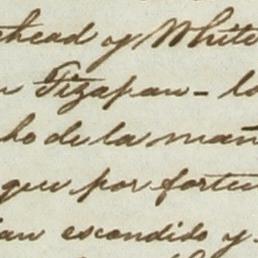 ehead y White
n Tizapan - lo
ho de la mañ
que por fortu
ian escondido y